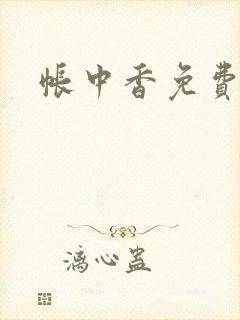 帐中香免费
漓心蛊